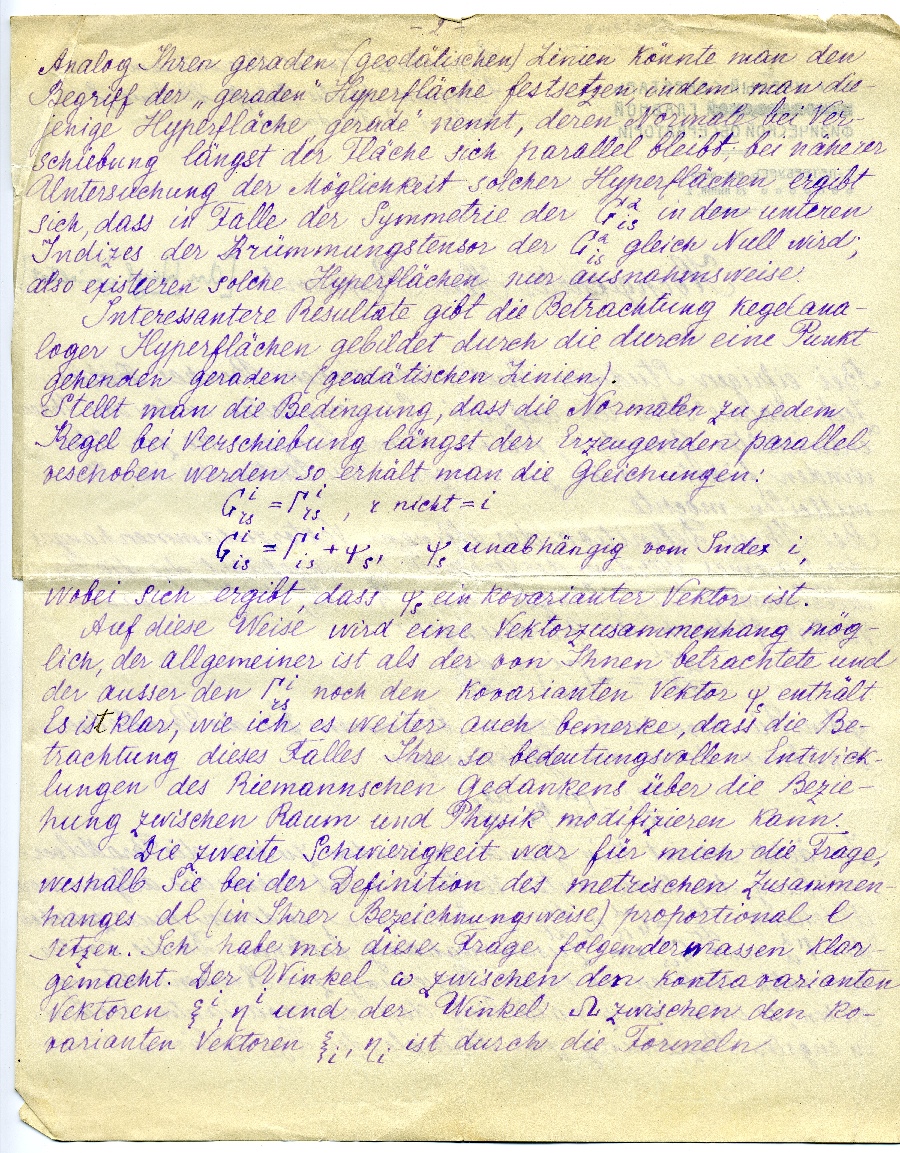 - 2 -
Analog Ihren geraden (geodätischen) Linien könnte man den
Begriff der „geraden" Hyperfläche festsetzen indem man die-
jenige Hyperfläche „gerade" nennt, deren Normale bei Ver-
schiebung längst der Fläche sich parallel bleibt; bei näherer
Untersuchung der Möglichkeit solcher Hyperflächen ergibt
sich, dass in Falle der Symmetrie der G^α_is in den unteren
Indizes der Krümmungstensor der G^α_is gleich Null wird;
also existieren solche Hyperflächen nur ausnahmsweise.
Interessantere Resultate gibt die Betrachtung kegelana-
loger Hyperflächen gebildet durch die durch eine Punkt
gehenden geraden (geodätischen Linien).
Stellt man die Bedingung, dass die Normalen zu jedem
Kegel bei Verschiebung längst der Erzeugenden parallel
veschoben werden so erhält man die Gleichungen:
G^i_rs = Γ^i_rs, r nicht = i
G^i_is = Γ^i_is + ψ_s, ψ_s unabhängig vom Index i,
wobei sich ergibt, dass ψ_s ein kovarianter Vektor ist.
Auf diese Weise wird eine Vektorzusammenhang mög-
lich, der allgemeiner ist als der von Ihnen betrachtete und
der ausser den Γ^i_rs noch den kovarianten Vektor ψ_s enthält
Es ist klar, wie ich es weiter auch bemerke, dass die Be-
trachtung dieses Falles Ihre so bedeutungsvollen Entwick-
lungen des Riemannschen Gedankens über die Bezie-
hung zwischen Raum und Physik modifizieren kann.
Die zweite Schwierigkeit war für mich die Frage,
weshalb Sie bei der Definition des metrischen Zusammen-
hanges dl (in Ihrer Bezeichnungsweise) proportional l
setzen. Ich habe mir diese Frage folgendermassen klar-
gemacht. Der Winkel ω zwischen den kontravarianten
Vektoren ξ^i, η^i und der Winkel Ω zwischen den ko-
varianten Vektoren ξ_i, η_i ist durch die Formeln